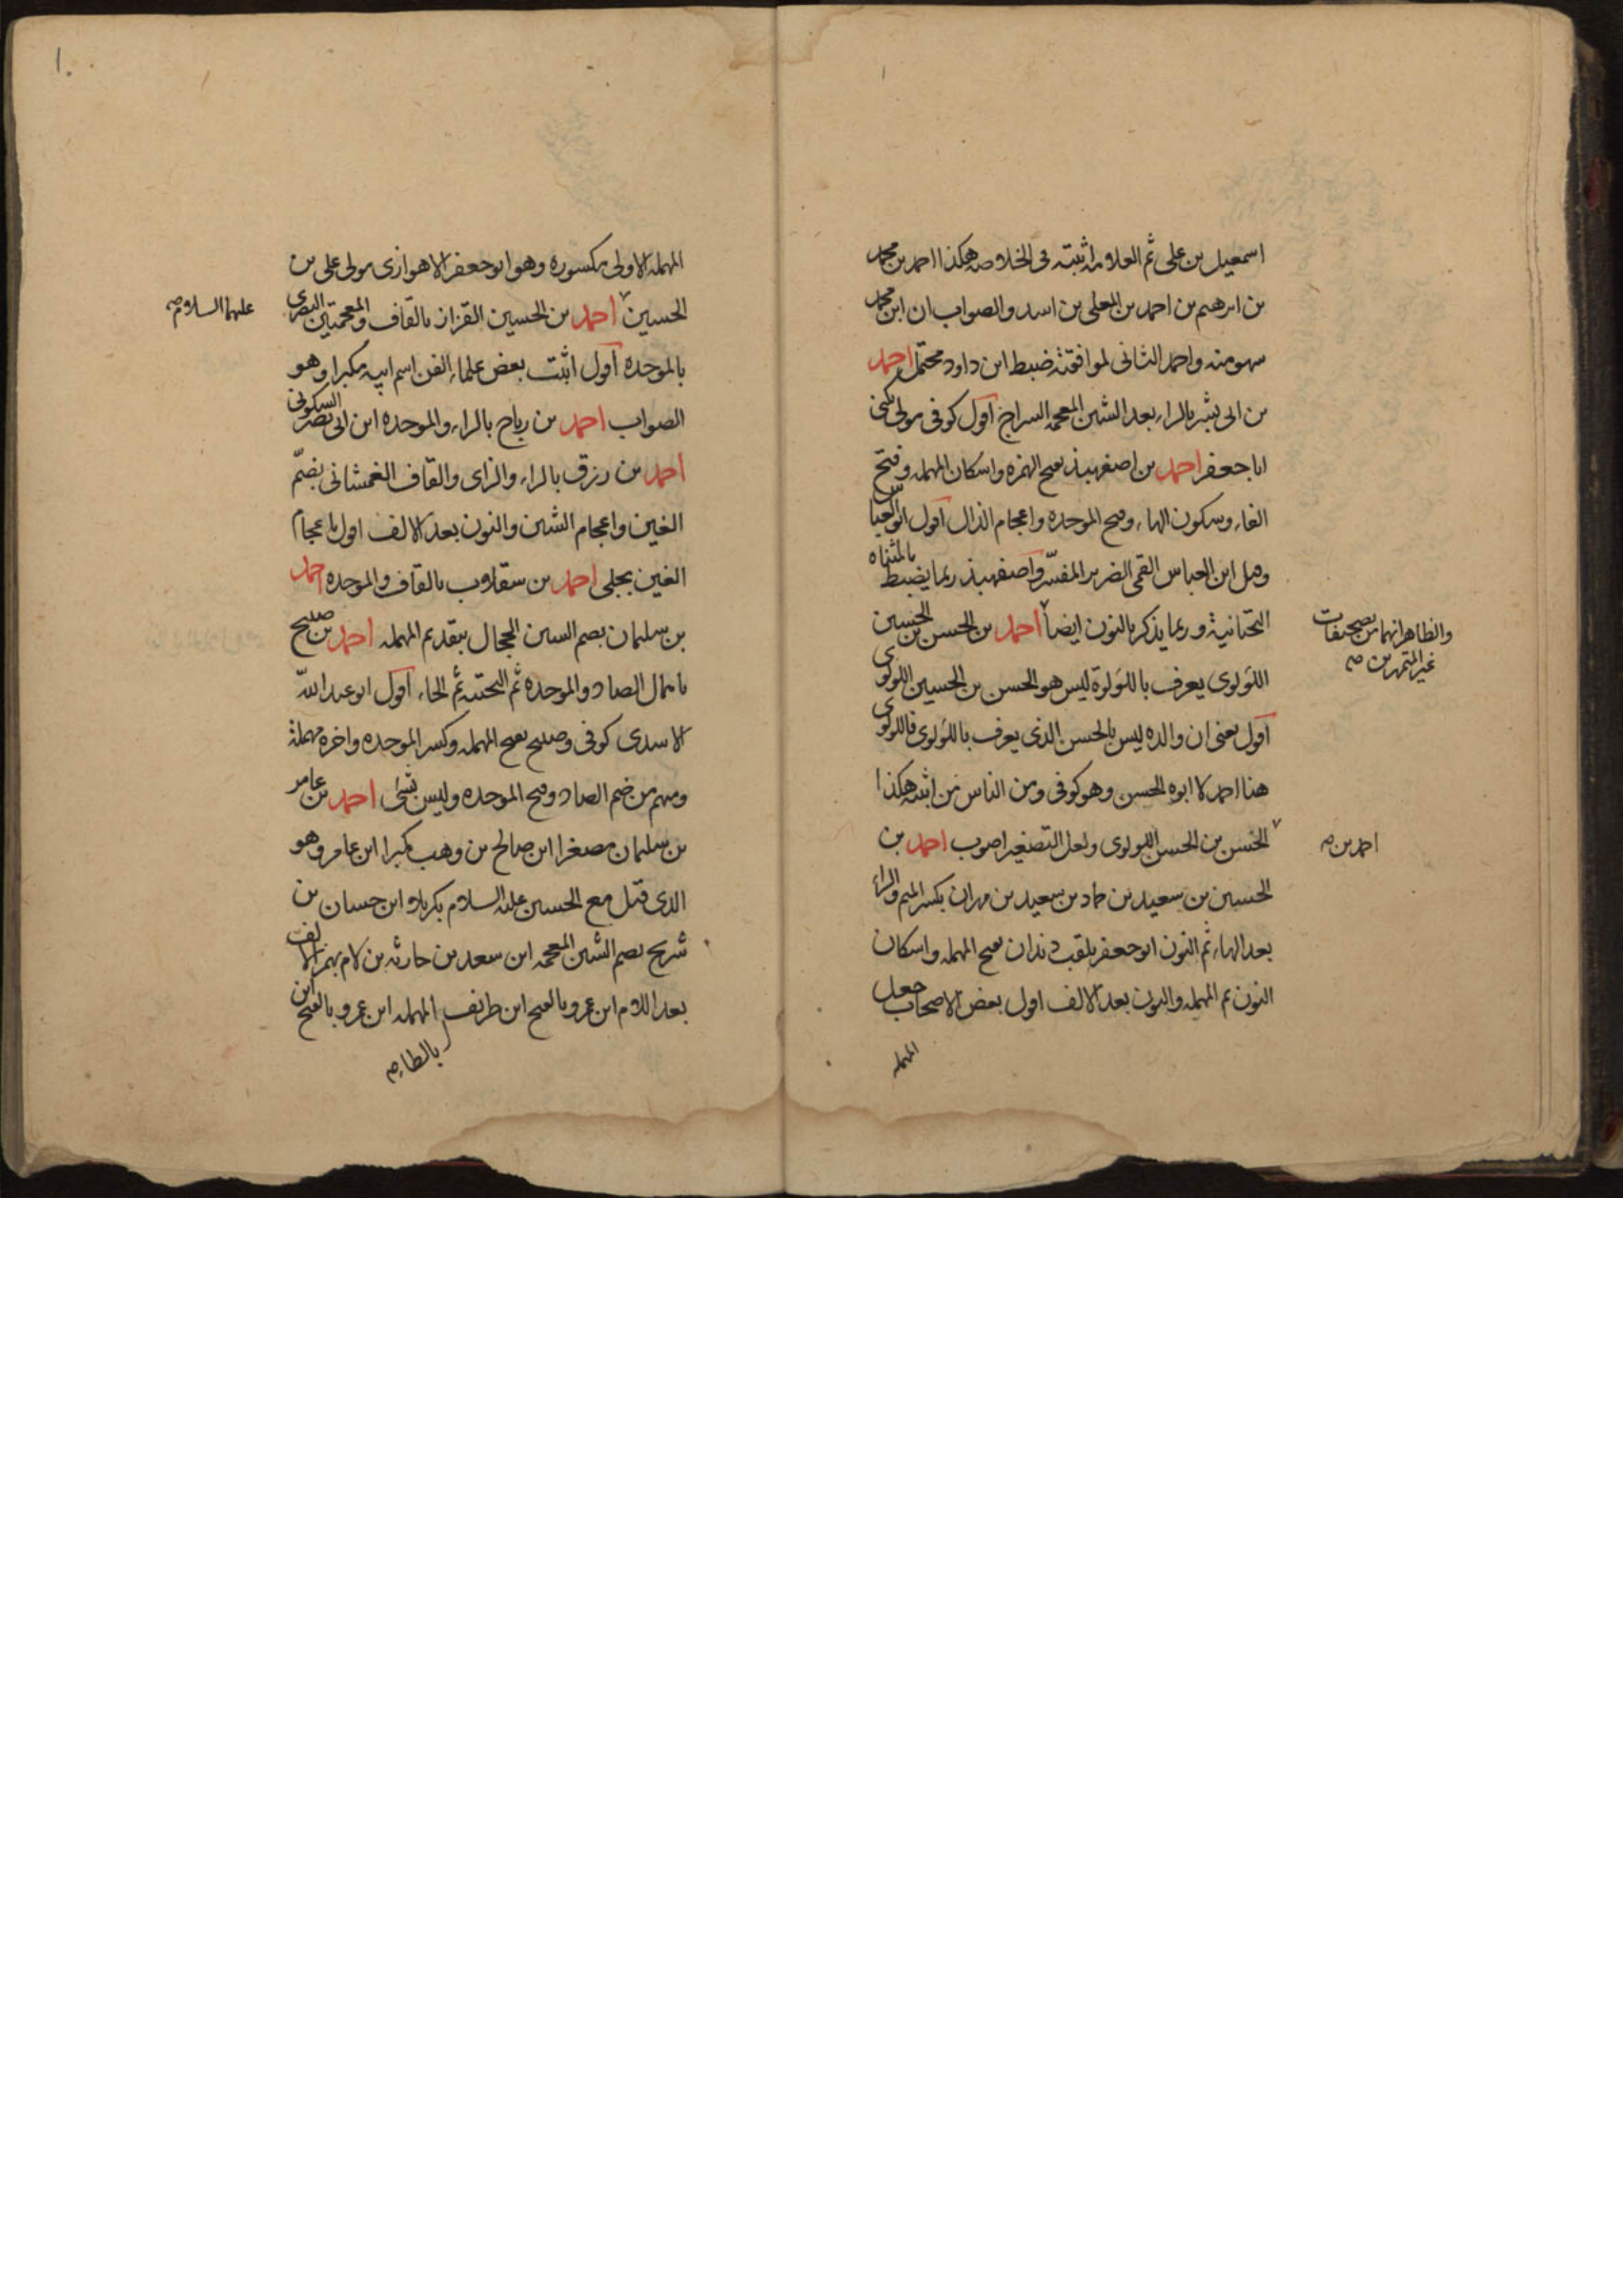 اسمعيل بن على ثم العلامه اثبته فى الخلاصه هكذا احمد بن محمد
بن ابرهيم بن احمد بن المعلى بن اسد والصواب ان ابن محمد
سهو منه واحمد الثانى لموافقته ضبط ابن داود محتمل احمد
بن ابى بشر بالراء بعد الشين المعجمه السراج اقول كوفى مولى يكنى
ابا جعفر احمد بن اصفهبذ بفتح الهمزه واسكان المهمله وفتح
الفاء وسكون الهاء وفتح الموحده واعجام الذال اقول ابو العباس
وقيل ابن العباس القمى الضرير المفسّر واصفهبذ ربما يضبط بالمثناه
التحتانية وربما يذكر بالنون ايضا احمد بن الحسن بن الحسين
والظاهر انهما من تصحيفات
غير المتمهرين صح
اللؤلوى يعرف باللؤلوة ليس هو الحسن بن الحسين اللولوى
اقول يعنى ان والده ليس بالحسن الذى يعرف باللؤلوى فاللولوى
هنا احمد لا ابوه الحسن وهو كوفى ومن الناس من اثبته هكذا
احمد بن صح
الحسن بن الحسن اللولوى ولعل التصغير اصوب احمد بن
الحسين بن سعيد بن حماد بن سعيد بن مهران بكسر الميم والراء
بعد الهاء ثم النون ابو جعفر يلقب دندان بفتح المهمله واسكان
النون ثم المهمله والنون بعد الالف اقول بعض الاصحاب جعل
المهمله
١٠
المهمله الاولى مكسوره وهو ابو جعفر الاهوازى مولى على بن
الحسين احمد بن الحسين القزاز بالقاف والمعجمتين البصرى
عليهما السلام صح
بالموحده اقول اثبت بعض علماء الفن اسم ابيه مكبرا وهو
الصواب احمد بن رباح بالراء والموحده ابن ابى نصر السكونى
احمد بن رزق بالراء والزاى والقاف الغمشانى بضمّ
الغين واعجام الشين والنون بعد الالف اقول باعجام
الغين بجلى احمد بن سقلاب بالقاف والموحده احمد
بن سليمان بضم السين الحجال بتقديم المهمله احمد بن صبيح
باهمال الصاد والموحده ثم التحتيه ثم الحاء اقول ابو عبد اللّه
الاسدى كوفى وصبيح بفتح المهمله وكسر الموحده واخره مهملة
ومنهم من ضم الصاد وفتح الموحده وليس بشئ احمد بن عامر
بن سليمان مصغرا ابن صالح بن وهب مكبرا ابن عامر وهو
الذى قتل مع الحسين عليه السلام بكربلا ابن حسان بن
شريح بضم الشين المعجمه ابن سعد بن حارثه بن لام بهمز الالف
بعد اللام ابن عمرو بالفتح ابن طريف المهمله ابن عمرو بالفتح ابن
بالطاء صح